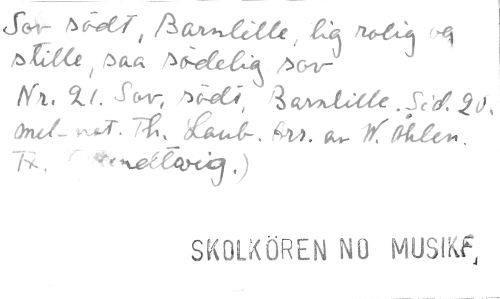 Sov södt, Barnlille, lig rolig og
stille, saa södelig sov
Nr. 21. Sov, södt, Barnlille. Sid. 20.
mel-not. Th. Laub. Arr. av W. Åhlén.
Tx. ndtvig.)
SKOLKÖREN NO MUSIKF,